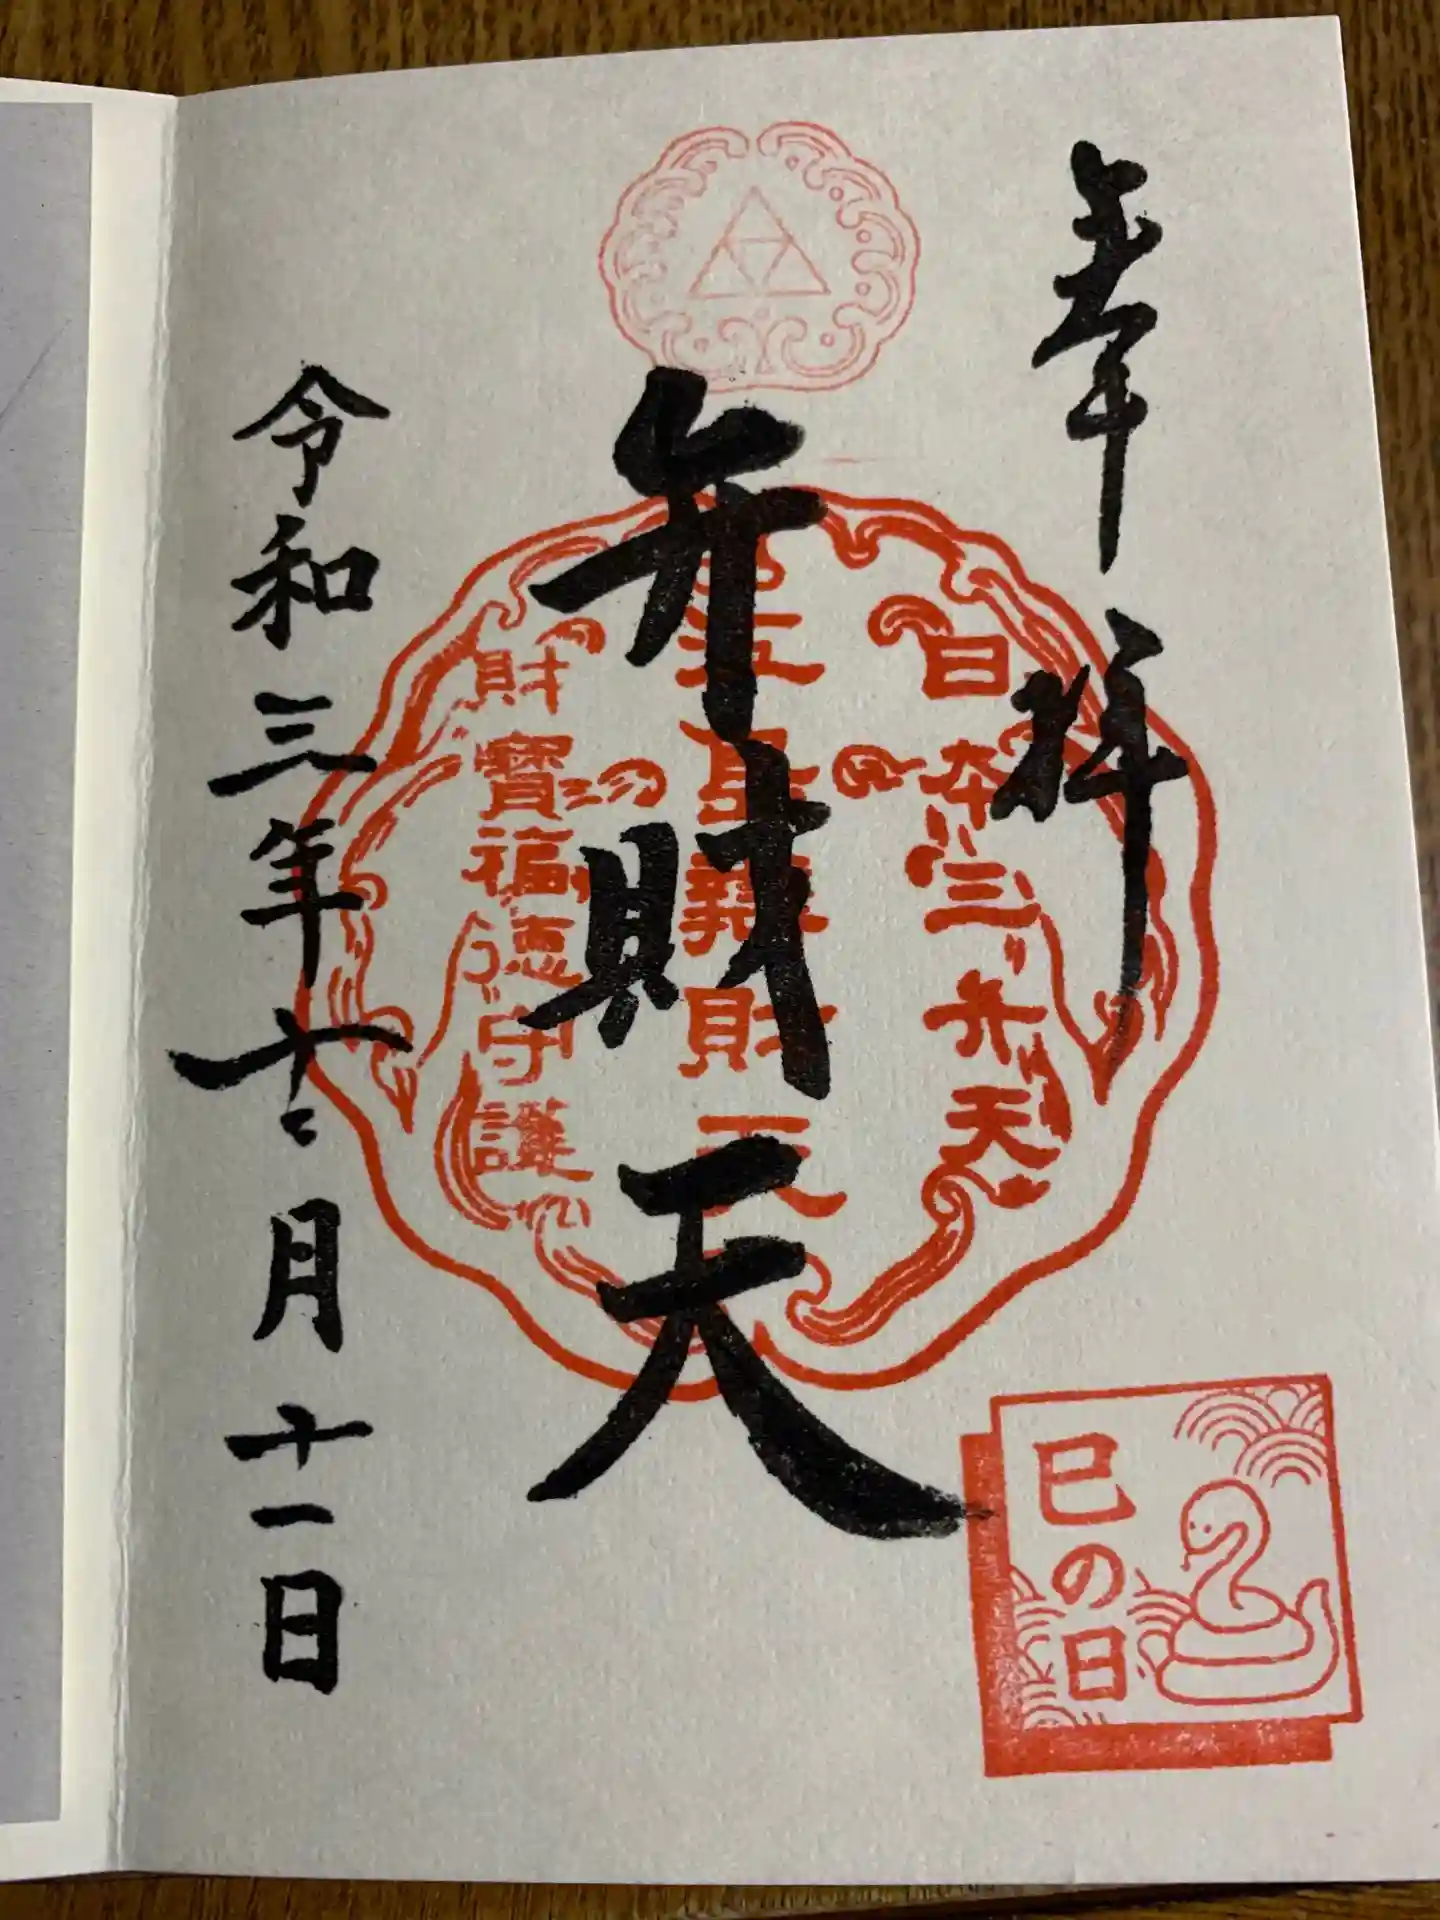 奉拝
弁財天
令和三年十二月十一日
日本三弁天
辨財天
財寶福徳守護
巳の日